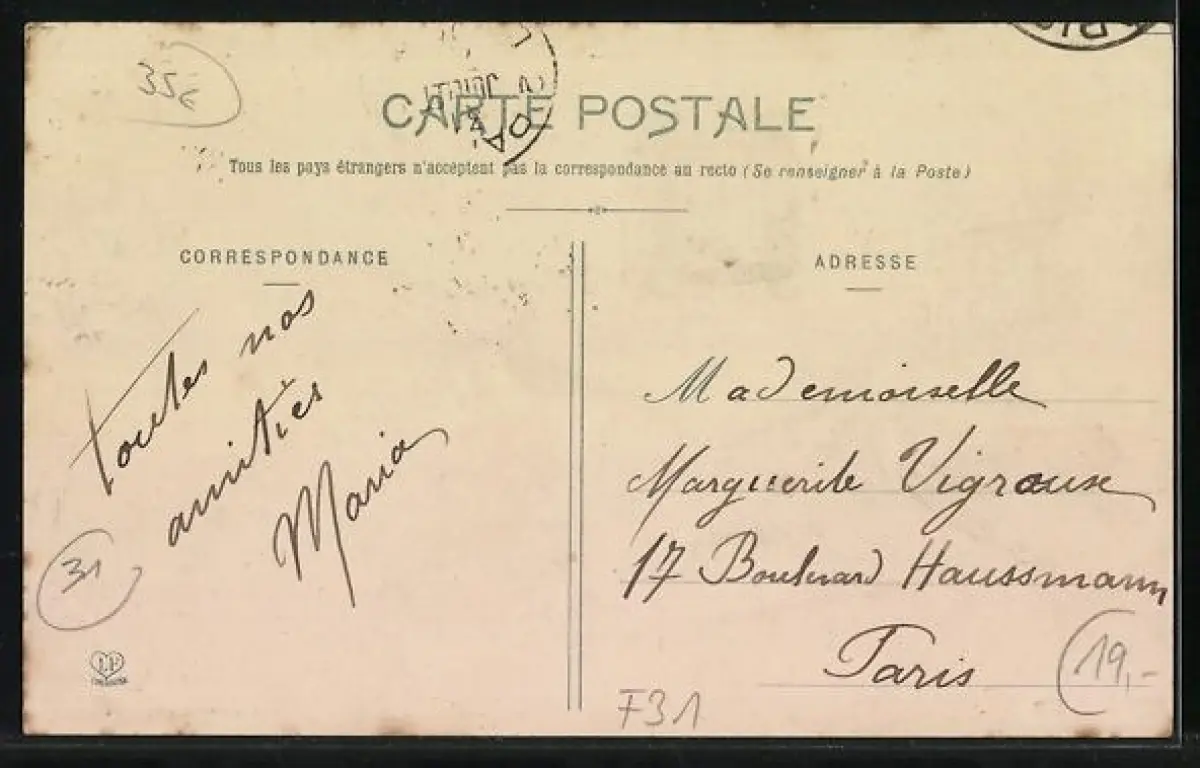 35€
CARTE POSTALE
Tous les pays étrangers n'acceptent pas la correspondance au recto (Se renseigner à la Poste)
CORRESPONDANCE
toutes nos
amitiés
Maria
31
ADRESSE
Mademoiselle
Marguerite Vigroux
17 Boulevard Haussmann
Paris
19,-
F31